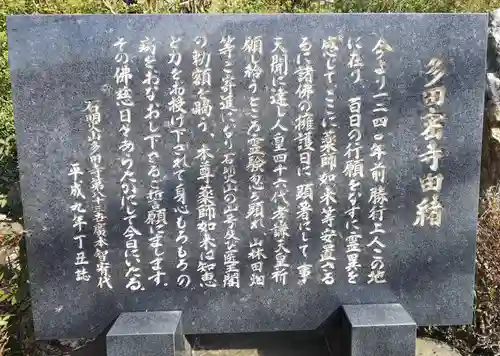 多田密寺由緒
今より一二四〇年前勝行上人この地
に在り、百日の行願をなすに霊異を
感じてここに薬師如来等安置さる
るに諸佛の擁護日に顕著にして事
天聞に達し人皇四十六代孝謙天皇祈
願し給うところ霊験忽ち顕れ山林田畑
等ご寄進になり石明山の山号及び医王閣
の勅額を賜う。本尊薬師如来は知恵
と力をお授け下されて身心もろもろの
病をおなおし下さるご誓願にまします。
その佛慈日々あらたかにして今日にいたる。
石明山多田寺第六十五世廣本智
平成九年丁丑誌